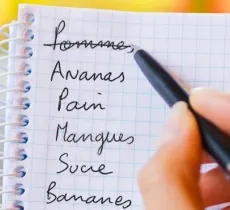 Pommes
Ananas
Pain
Mangues
Sucre
Bananes